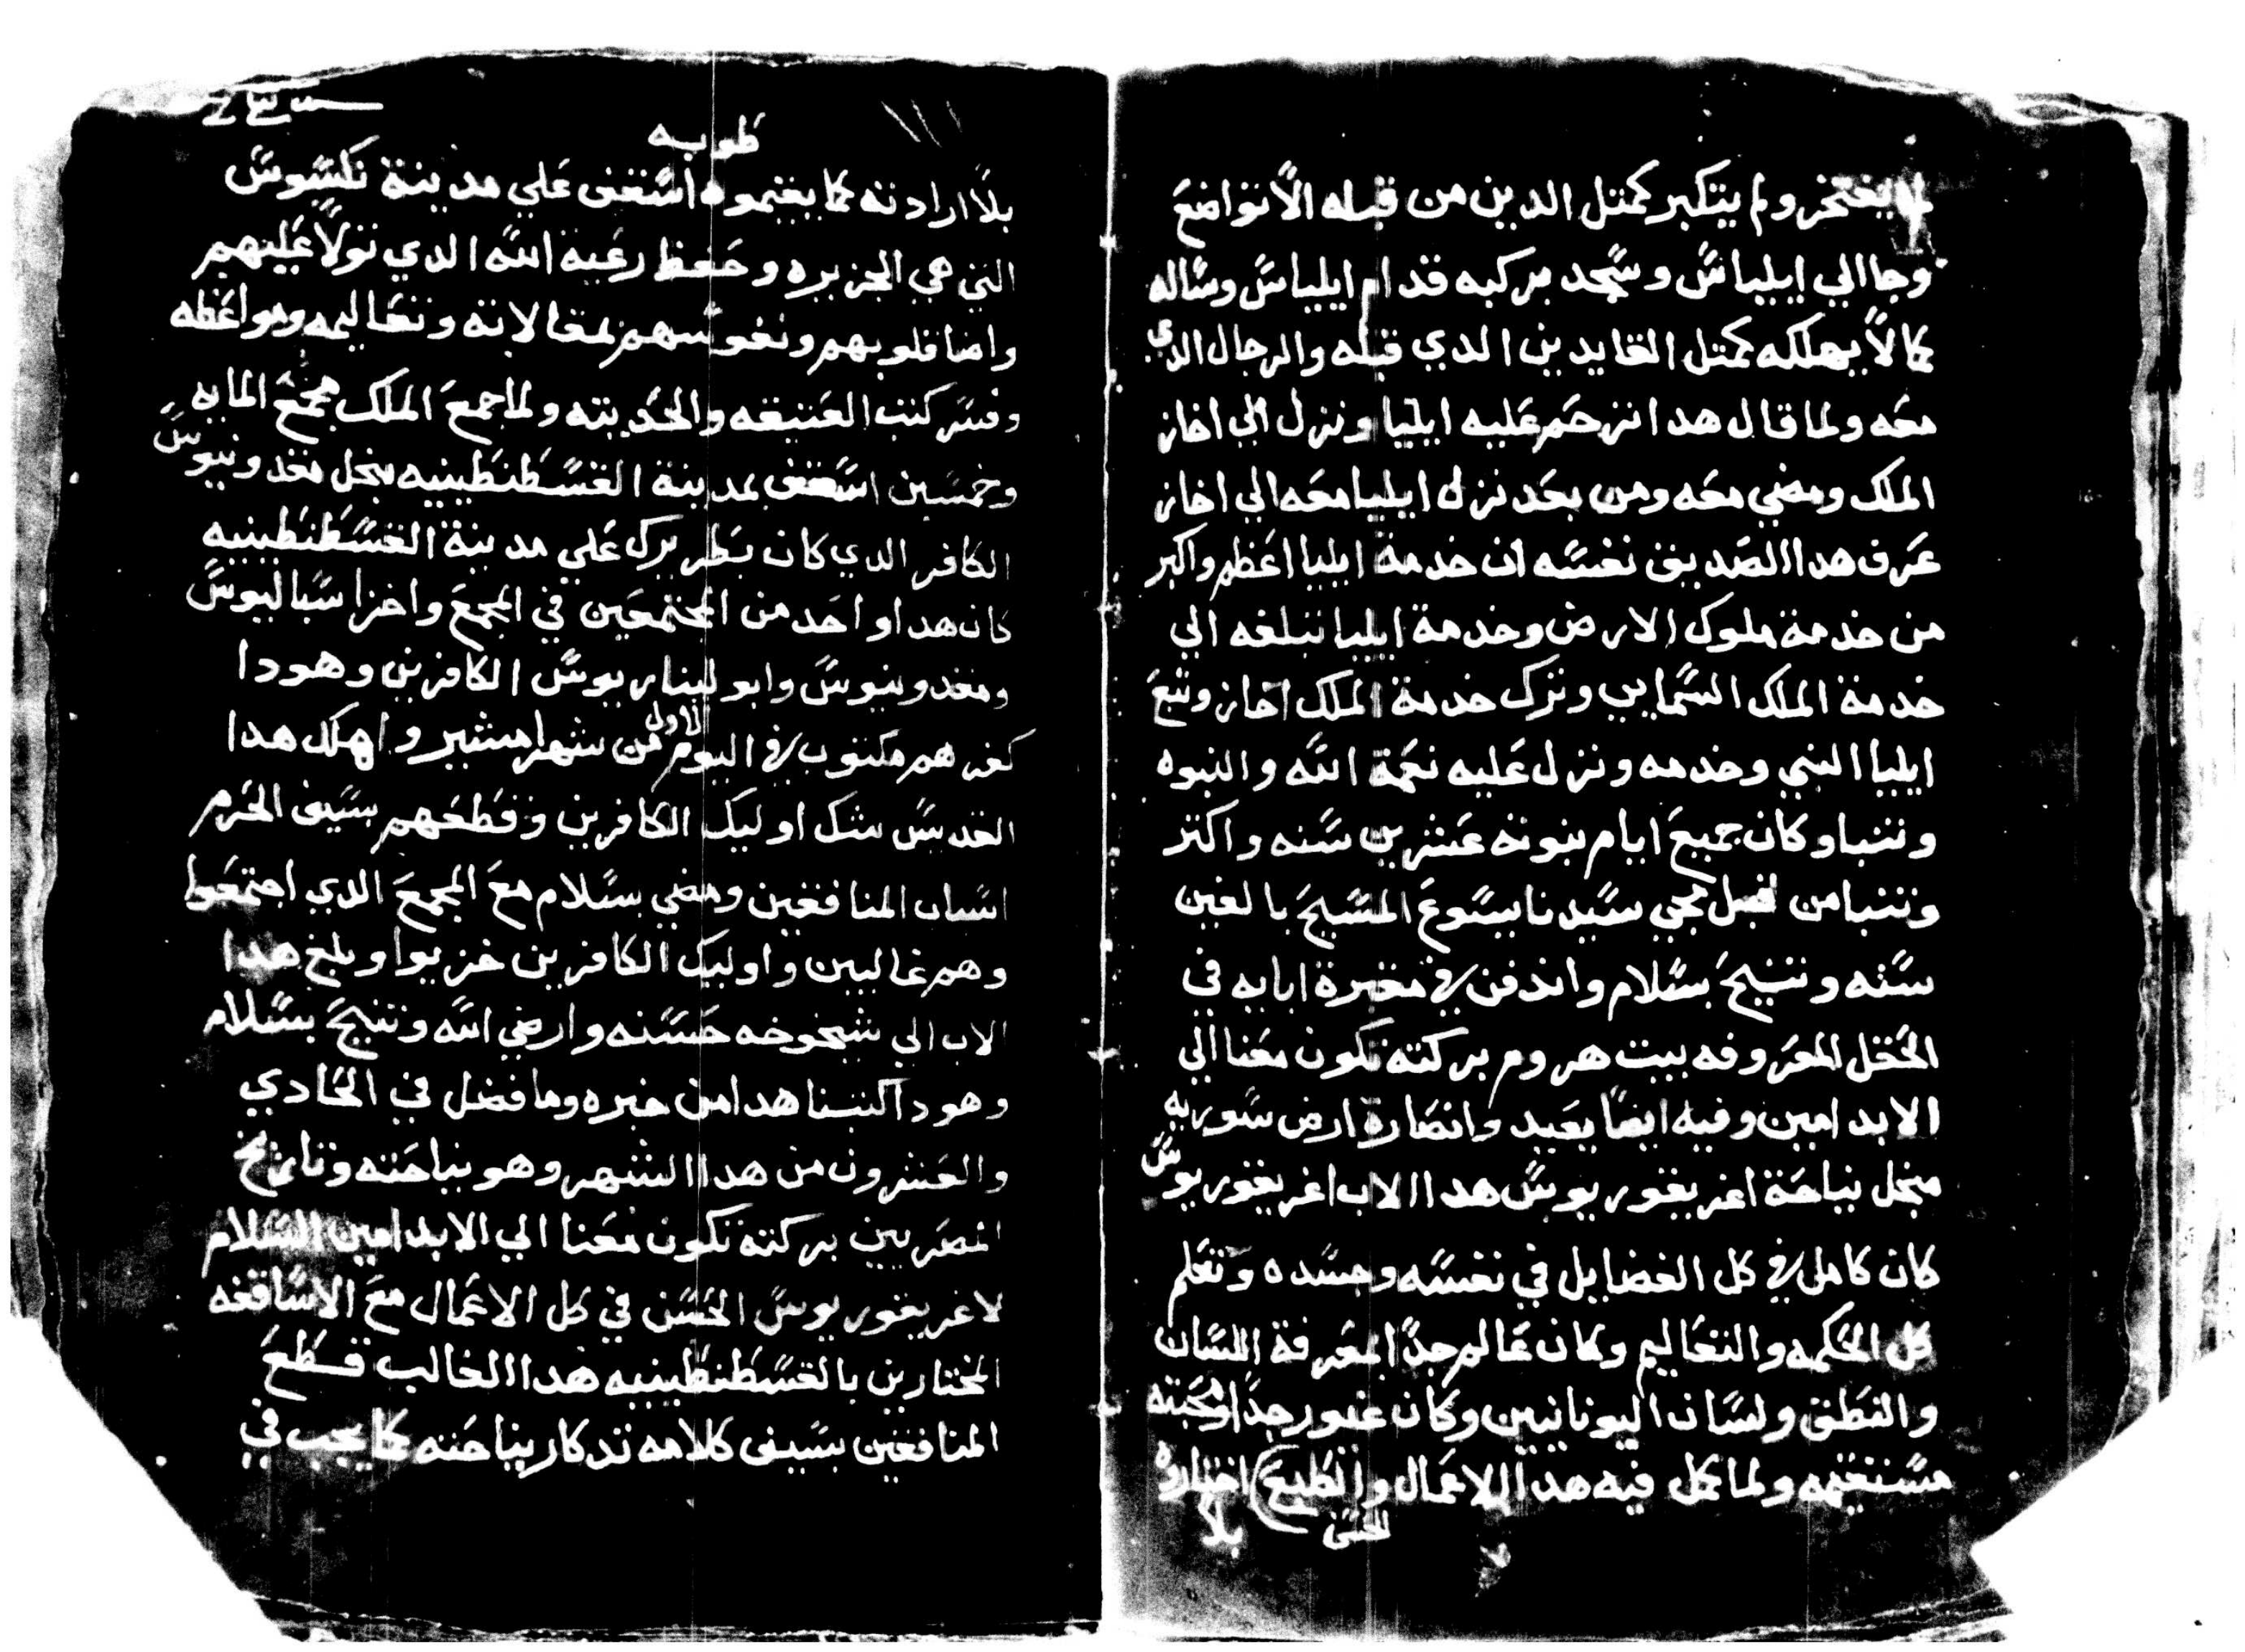 لم يفتخر ولم يتكبر كمتل الدين من قبله الا تواضع
وجا الي ايلياس وسجد بركبه قدام ايلياس وساله
كما لا يهلكه كمتل القايدين الدي قبله والرجال الدي
معه ولما قال هدا ترحم عليه ايليا ونزل الي اخاز
الملك ومضي معه ومن بعد نزل ايليا معه الي اخاز
عرف هدا الصديق نفسه ان خدمة ايليا اعظم واكبر
من خدمة ملوك الارض وخدمة ايليا تبلغه الي
خدمة الملك السمايي وترك خدمة الملك اخاز وتبع
ايليا النبي وخدمه ونزل عليه نعمة الله والنبوه
وتنبا وكان جميع ايام نبوته عشرين سنه واكتر
وتنبا من قبل مجي سيدنا يسوع المسيح بالفين
سنه وتنيح بسلام واندفن في مقبرة ابايه في
الحقل المعروفه ببيت هروم بركته تكون معنا الي
الابد امين وفيه ايضا يعيد وانصاره ارض سوريه
منجل نياحة اغريغوريوس هدا الاب اغريغوريوس
كان كامل في كل الفضايل في نفسه وجسده وتعلم
كل الحكمه والتعاليم وكان عالم جدا بمعرفة اللسان
والنطق ولسان اليونانيين وكان غيور جدا ومحبته
مستقيمه ولما كمل فيه هدا الاعمال والطبع اختاره
الحسن بلا
طوبه
بلا ارادته كما يقيموه اسقف علي مدينة نكسيوس
التي هي الجزيره وحفظ رعية الله الدي تولا عليهم
واضا قلوبهم ونفوسهم بمقالاته وتعاليمه ومواعظه
وفسر كتب العتيقه والحديته ولما جمع الملك مجمع المايه
وخمسين اسقف بمدينة القسطنطينيه منجل مقدونيوس
الكافر الدي كان بطريرك علي مدينة القسطنطينيه
كان هدا واحد من المجتمعين في المجمع واخزا سباليوس
ومقدونيوس وابوليناريوس الكافرين وهودا
كفرهم مكتوب في اليوم الاول من شهر امشير واهلك هدا
القديس شك اوليك الكافرين وقطعهم بسيف الحرم
اسان المنافقين ومضي بسلام مع المجمع الدي اجتمعوا
وهم غالبين واوليك الكافرين خزيوا وبلغ هدا
الاب الي شيخوخه حسنه وارضي الله وتنيح بسلام
وهودا كتبنا هدا من خبره وما فضل في الحادي
والعشرون من هدا الشهر وهو نياحته وتاريخ
المصريين بركته تكون معنا الي الابد امين السلام
لاغريغوريوس الحسن في كل الاعمال مع الاساقفه
المختارين بالقسطنطينيه هدا الغالب قطع
المنافقين بسيف كلامه تدكار نياحته كما يجب في